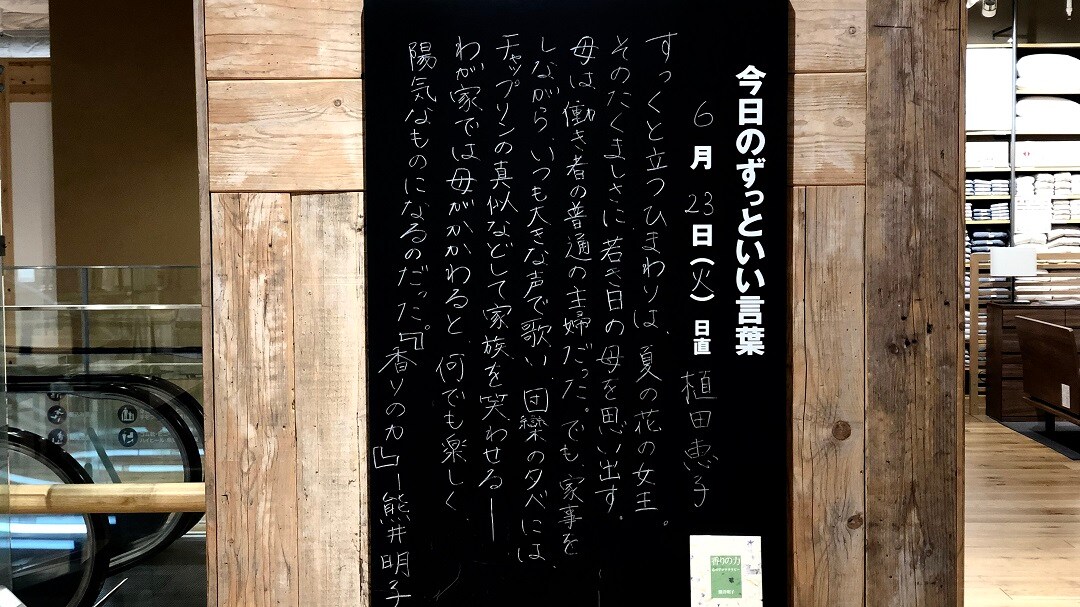 今日のずっといい言葉
6月23日(火)日直 植田恵子
すっくと立つひまわりは、夏の花の女王。
そのたくましさに若き日の母を思い出す。
母は働き者の普通の主婦だった。でも、家事を
しながら、いつも大きな声で歌い、団欒の夕べには、
チャップリンの真似などして家族を笑わせる―
わが家では母がかかわると、何でも楽しく、
陽気なものになるのだった。
『香りの力』―熊井明子
香りの力